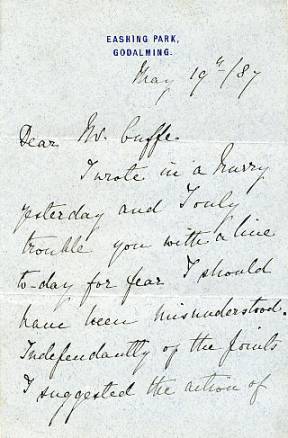 EASHING PARK,
GODALMING.
May 19th/87
Dear Mr. Cuffe.
I wrote in a hurry
yesterday and I only
trouble you with a line
to-day for fear I should
have been misunderstood.
Independantly of the Joints
I suggested the action of